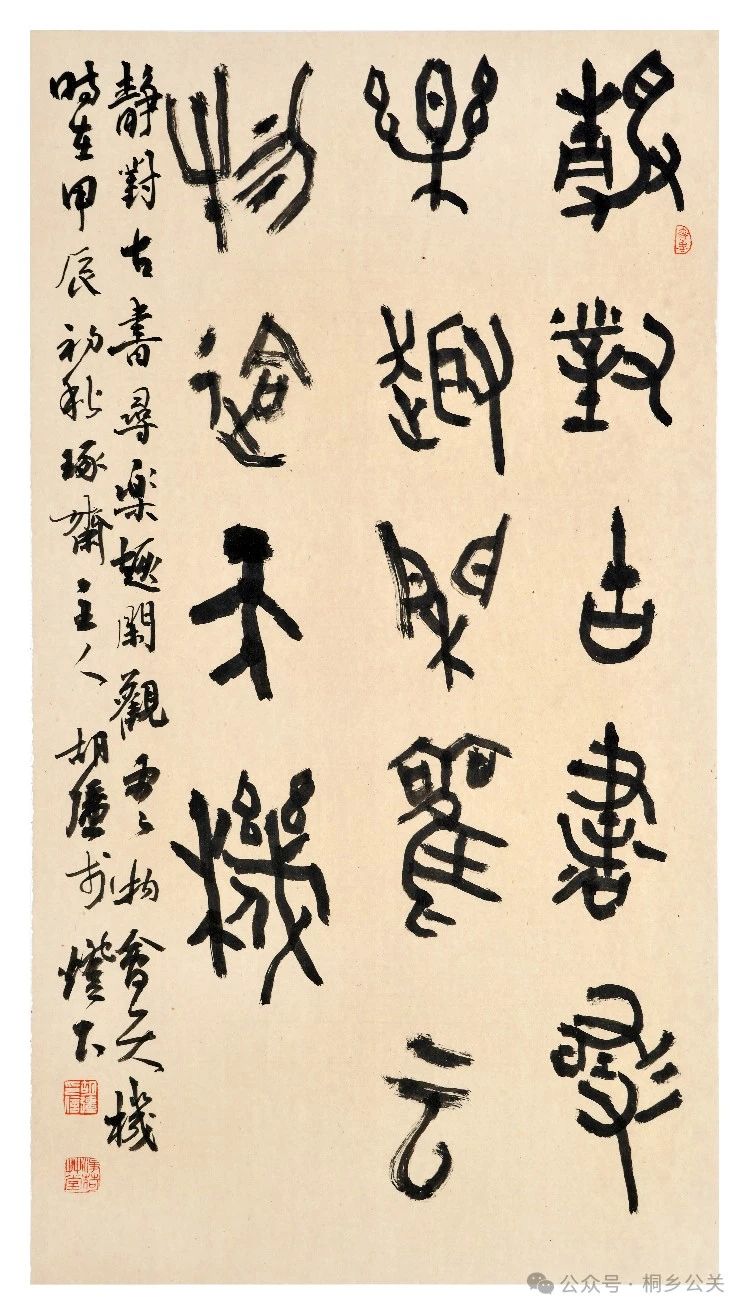 靜對古書尋
樂趣閒觀云
物逾天機
靜對古書尋樂趣閑觀雲物會天機
時在甲辰初秋琢齋主人胡於燈下
公众号 · 桐乡公关